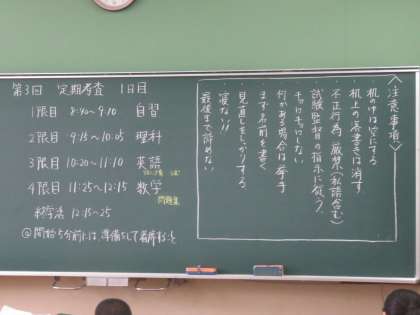 第3回 定期考査 1日目
1限目 8:40~9:10 自習
2限目 9:15~10:05 理科
3限目 10:20~11:10 英語
4限目 11:25~12:15 数学
問題集
終学活 12:15~25
◎開始5分前には、準備をして着席すること
<注意事項>
・机の中は空にする
・机上の落書きは消す
・不正行為厳禁(私語含む)
・試験監督の指示に従う
・チョロチョロしない
・何かある場合は挙手
・まず名前を書く
・見直しをしっかりする
・寝ない!!
・最後まで諦めない